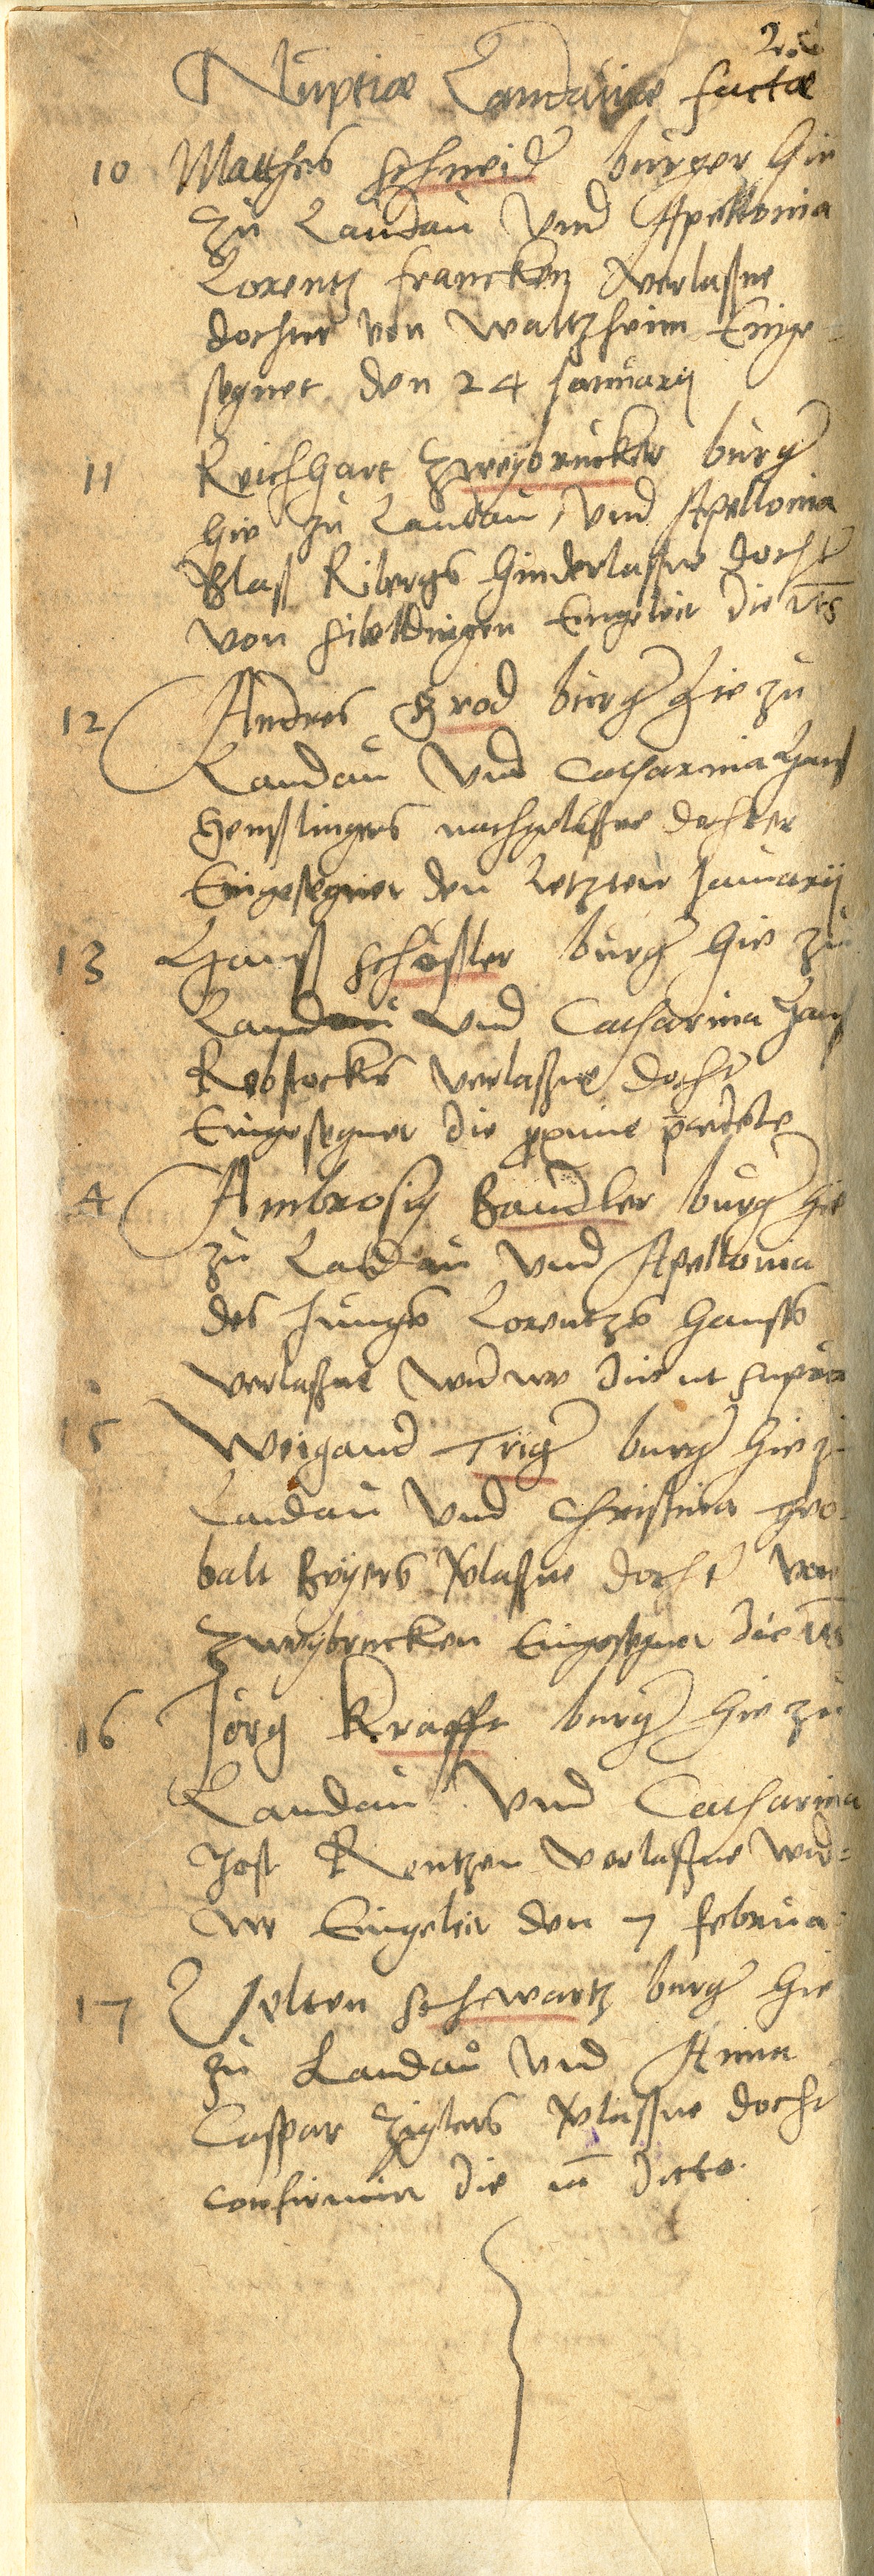 Nuptiæ Landaviæ factæ
10 Matthes Schneid' burger hie
zu Landau vnd Apellonia
Lorentz Francken verlaßne
dochter von Waltzheim Einge-
segnet den 24 Januarij
11 Reichhart Zweybrucker burg'
hie zu Landau, vnd Apellonia
Blaß Ribergs hinderlaßne docht'
von Sibeldingen Eingeleit die
12 Andres Brod burg' hie zu
Landau vnd Catharina Hanß
Henßlingers nachgelaßne dochter
Eingesegnet den Letzten Januarij
13 Hanß Schößler burg' hie zu
Landau vnd Catharina Hanß
Rebstockes verlaßne docht'
Eingesegnet die
4 Ambrosiy Baudler burg' hie
zu Landau vnd Apellonia
des Jungs Lorentzs Hanßs
verlaßne widwe die ut supra
15 Weigand Trig' burg' hie zu
Landau vnd Christina
balt Beyers v'laßne docht' von
Zweybrucken Eingesegnet die
16 Jörg Krafft burg' hie zu
Landau vnd Catharina
Jost Rentzen verlaßne wid-
we Eingeleit den 7 Februa:
17 Velten Schwartz burg' hie
zu Landau vnd Anna
Caspar Ziglers v'laßne docht'
confirmirt die ditto.